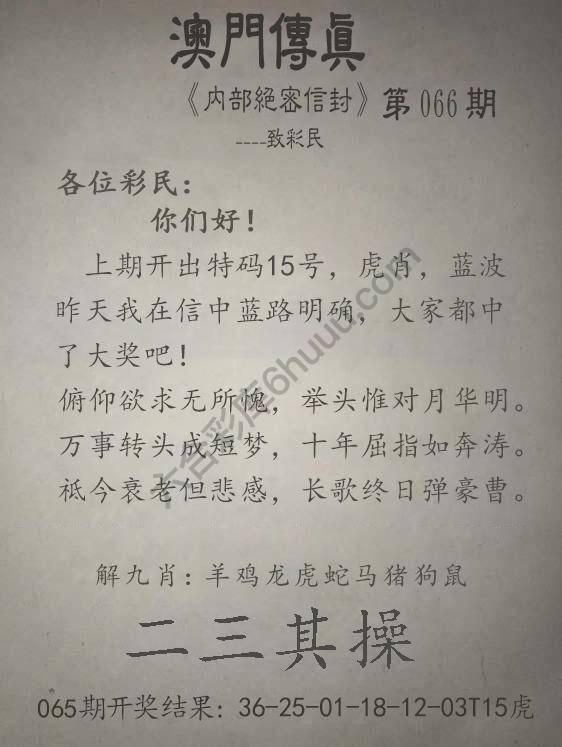 澳門傳眞
《内部絕密信封》第066期
----致彩民
各位彩民：
你们好！
上期开出特码15号，虎肖，蓝波
昨天我在信中蓝路明确，大家都中
了大奖吧！
俯仰欲求无所愧，举头惟对月华明。
万事转头成短梦，十年屈指如奔涛。
祇今衰老但悲感，长歌终日弹豪曹。
解九肖：羊鸡龙虎蛇马猪狗鼠
二三其操
065期开奖结果：36-25-01-18-12-03T15虎
六合彩库6huuu.com